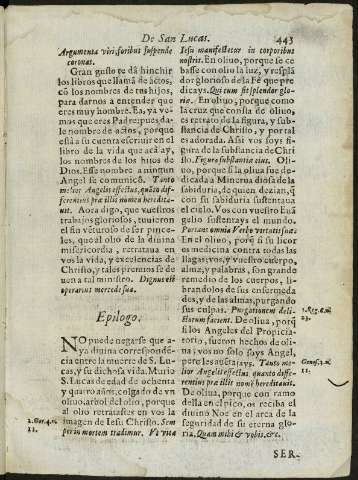 De San Lucas. 443
Argumenta viri, foribus suspende
coronas.
Gran gusto te dà hinchir
los libros que llamã de actos,
cõ los nombres de tus hijos,
para darnos a entender que
eres muy hombre. Ea, ya ve-
mos que eres Padre; pues da-
le nombre de actos, porque
està a su cuenta escriuir en el
libro de la vida que acà ay,
los nombres de los hijos de
Dios. Esse nombre a ningun
Angel se comunicò. Tanto
melior Angelis effectus, quãto dif-
ferentius præ illis nomen heredita-
uit. Aora digo, que vuestros
trabajos gloriosos, tuuieron
el fin vẽturoso de ser pince-
les, que al olio de la diuina
misericordia, retrataua en
vos la vida, y excelencias de
Christo, y tales premios se de
uen a tal ministro. Dignus est
operarius mercede sua.
Epilogo.
NO puede negarse que a-
ya diuina correspondẽ-
cia entre la muerte de S. Lu-
cas, y su dichosa vida. Murio
S. Lucas de edad de ochenta
y quatro años, colgado de vn
oliuo, arbol del olio, porque
al olio retratasteis en vos la
imagen de Iesu Christo. Sem
per in mortem tradimur. Vt vita
2. Cor. 4. n.
11.
Iesu manifestetur in corporibus
nostris. En oliuo, porque se ce
basse con olio la luz, y resplã
dor glorioso de la Fè que pre
dicays. Qui cum sit splendor glo-
riæ. En oliuo, porque como
la cruz que consta de oliuo,
es retrato de la figura, y sub-
stancia de Christo, y por tal
es adorada. Assi vos soys fi-
gura de la substancia de Chri
sto. Figura substantiæ eius. Oli-
uo, porque si la oliua fue de-
dicada a Minerua diosa de la
sabiduria, de quien dezian, q̃
con su sabiduria sustentaua
el cielo. Vos con vuestro Euã
gelio sustentays el mundo.
Portans omnia Verbo virtutis suæ
En el oliuo, porq̃ si su licor
es medicina contra todas las
llagas; vos, y vuestro cuerpo,
alma, y palabras, son grande
remedio de los cuerpos, li-
brandolos de sus enfermeda
des, y de las almas, purgando
sus culpas. Purgationem deli-
ctorum faciens. De oliua, porq̃
si los Angeles del Propicia-
torio, fueron hechos de oli-
ua; vos no solo soys Angel,
pero les auentajays. Tanto me-
lior Angelis effectus quanto diffe-
rentius præ illis nomen hereditauit.
De oliua, porque con ramo
della en el pico, os reciba el
diuino Noe en el arca de la
seguridad de su eterna glo-
ria. Quam mihi & vobis, &c.
3. Reg. 6. n.
23.
Genes. 8. n.
11.
SER-